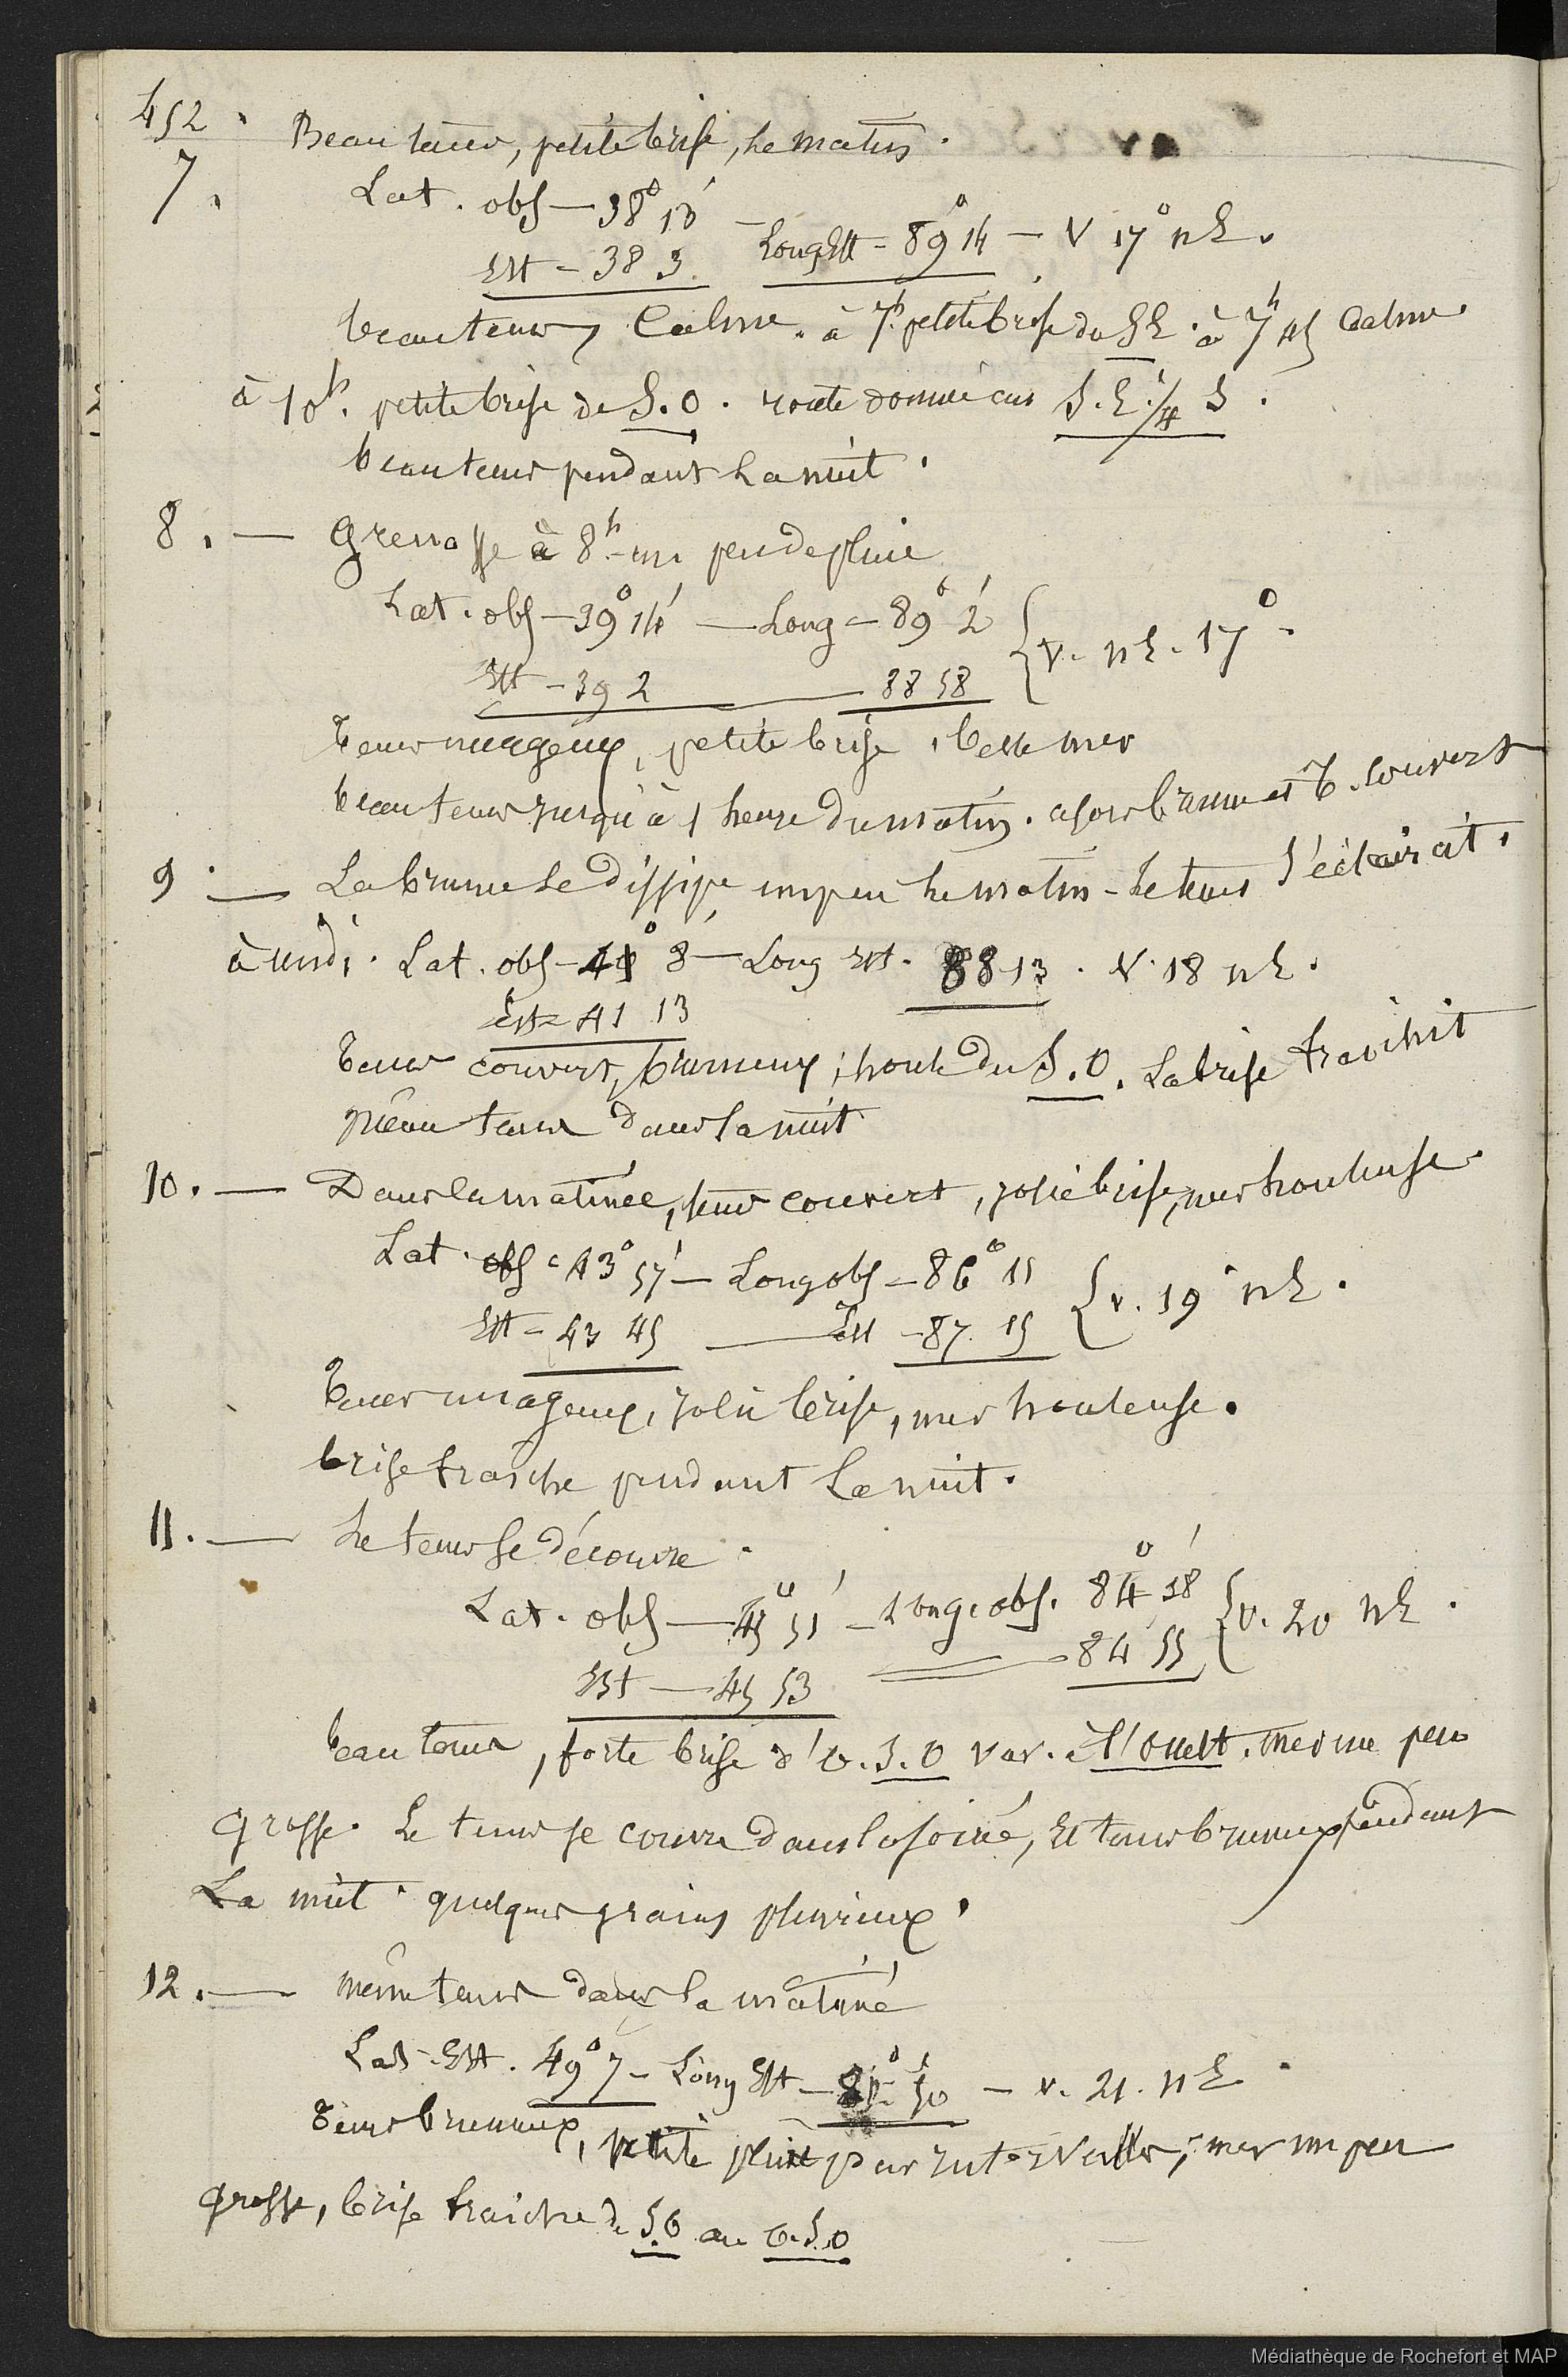 452.
7. Beau tems, petite brise, le matin.
Lat. obs — 38° 13' — Long Est - 89° 14 — V 17° NE.
Est - 38 3.
beau tems, Calme. à 7h petite brise du SE. à 7h 45 Calme
à 10h. petite brise de S.O. route donnée au S.E. 1/4 S.
beau tems pendant la nuit.
8. — Grenasse à 8h - un peu de pluie
Lat. obs — 39° 14' — Long — 89° 2' { V. NE. 17°.
Est — 39 2 — 88 58
Tems nuageux, petite brise, belle mer
beau tems jusqu'à 1 heure du matin. alors brume et T. couvert
9. — La brume se dissipe un peu le matin - le tems s'éclaircit.
à midi. Lat. obs - 41° 8' — Long Est. 88 13. V. 18 NE.
Est = 41 13
Tems couvert, brumeux; houle du S.O. La brise fraichit
même tems dans la nuit
10. — Dans la matinée, tems couvert, jolie brise, mer houleuse.
Lat. obs = 43° 57' — Long obs — 86° 11 { v. 19° NE.
Est - 43 45 — Est — 87. 15
Tems nuageux, jolie brise, mer houleuse.
brise fraîche pendant la nuit.
11. — Le tems se découvre.
Lat. obs — 45° 51' — Long. obs. 84° 18' { v. 20 NE.
Est — 45 53 — 84 55
beau tems, forte brise d'O.S.O var. à l'Ouest. mer un peu
grosse. Le tems se couvre dans la soirée, et tems brumeux pendant
La nuit. quelques grains pluvieux.
12. — même tems dans la matinée
Lat. Est. 49° 7 — Long Est — 50 — v. 21. NE.
Tems brumeux, petite pluie par intervalles; mer un peu
grosse, brise fraiche de S.O au O.S.O
Médiathèque de Rochefort et MAP